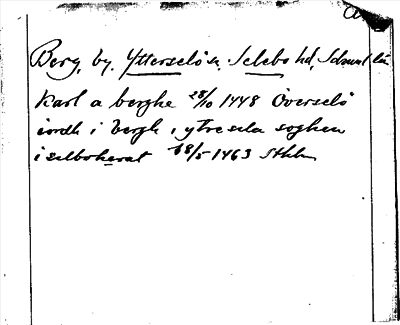 Berg, by, Ytterselö sn. Selebo hd, Sdmnl län
Karl a berghe 28/10 1448 Överselö
iordh i bergh i ytresela soghen
i selboherat 18/5 1463 Sthlm